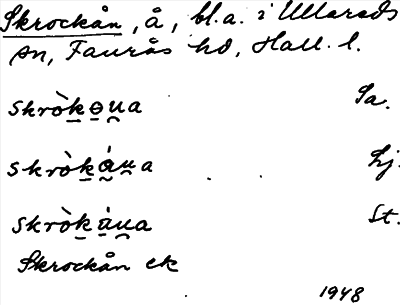 Skrockån, å, bl.a. i Ullareds
sn, Faurås hd, Hall. l.
skrò̀kɵu̯a Sa.
skrò̀káu̯a Lj.
skrò̀káu̯a St.
Skrockån ek
1948